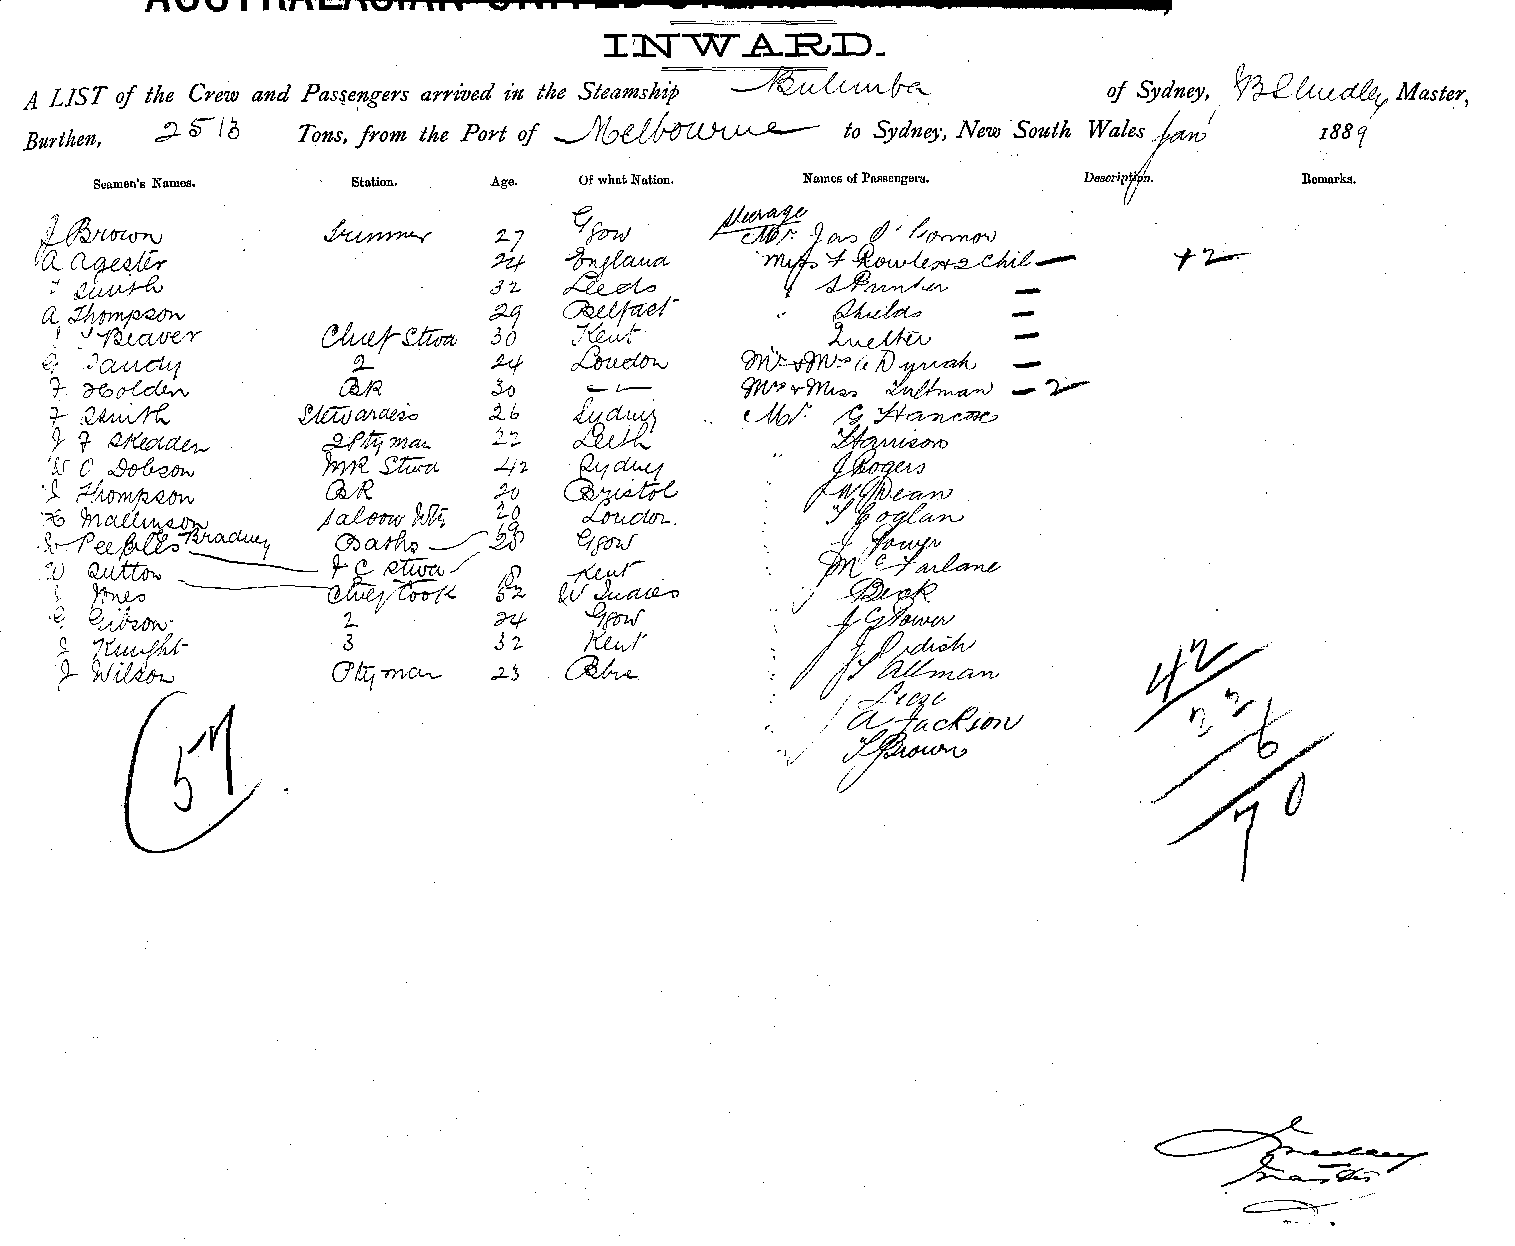 INWARD.
A LIST of the Crew and Passengers arrived in the Steamship Bulimba of Sydney, Master,
Burthen, 2513 Tons, from the Port of Melbourne to Sydney, New South Wales Jan 1889
Seamen's Names. Station. Age. Of what Nation. Names of Passengers. Description. Remarks.
Steerage
J Brown Trimmer 27 Ggow Mr. Jas O'Connor
A Agester 24 England Miss F Rowles + 2 Chil — +2 —
Smith 32 Leeds " S Printer —
A Thompson 29 Belfast " Shields —
Beaver Chief Stwd 30 Kent Quelter —
G Tandy 2 24 London Mr & Mrs —
F Holden BR 30 — — Mrs & Miss Tultman — 2
F Smith Stewardess 26 Sydney Mr. G Hancox
J F Skedden 2 Ptyman 22 Leith " Harrison
W O Dobson MR Stwd 42 Sydney J Rogers
J Thompson BR 20 Bristol W Dean
H Mallinson Saloon Wtr 20 London. T Coglan
Peebles Bradney Baths 19 28 Ggow J
W Sutton F C Stwd 18 Kent McFarlane
J Jones Chief Cook 52 W Indies Beck
G Gibson 2 24 Ggow J Glower
J Knight 3 32 Kent J
J Wilson Ptyman 23 T Allman
A Jackson
T Brown
57
42
22
6
70
Master